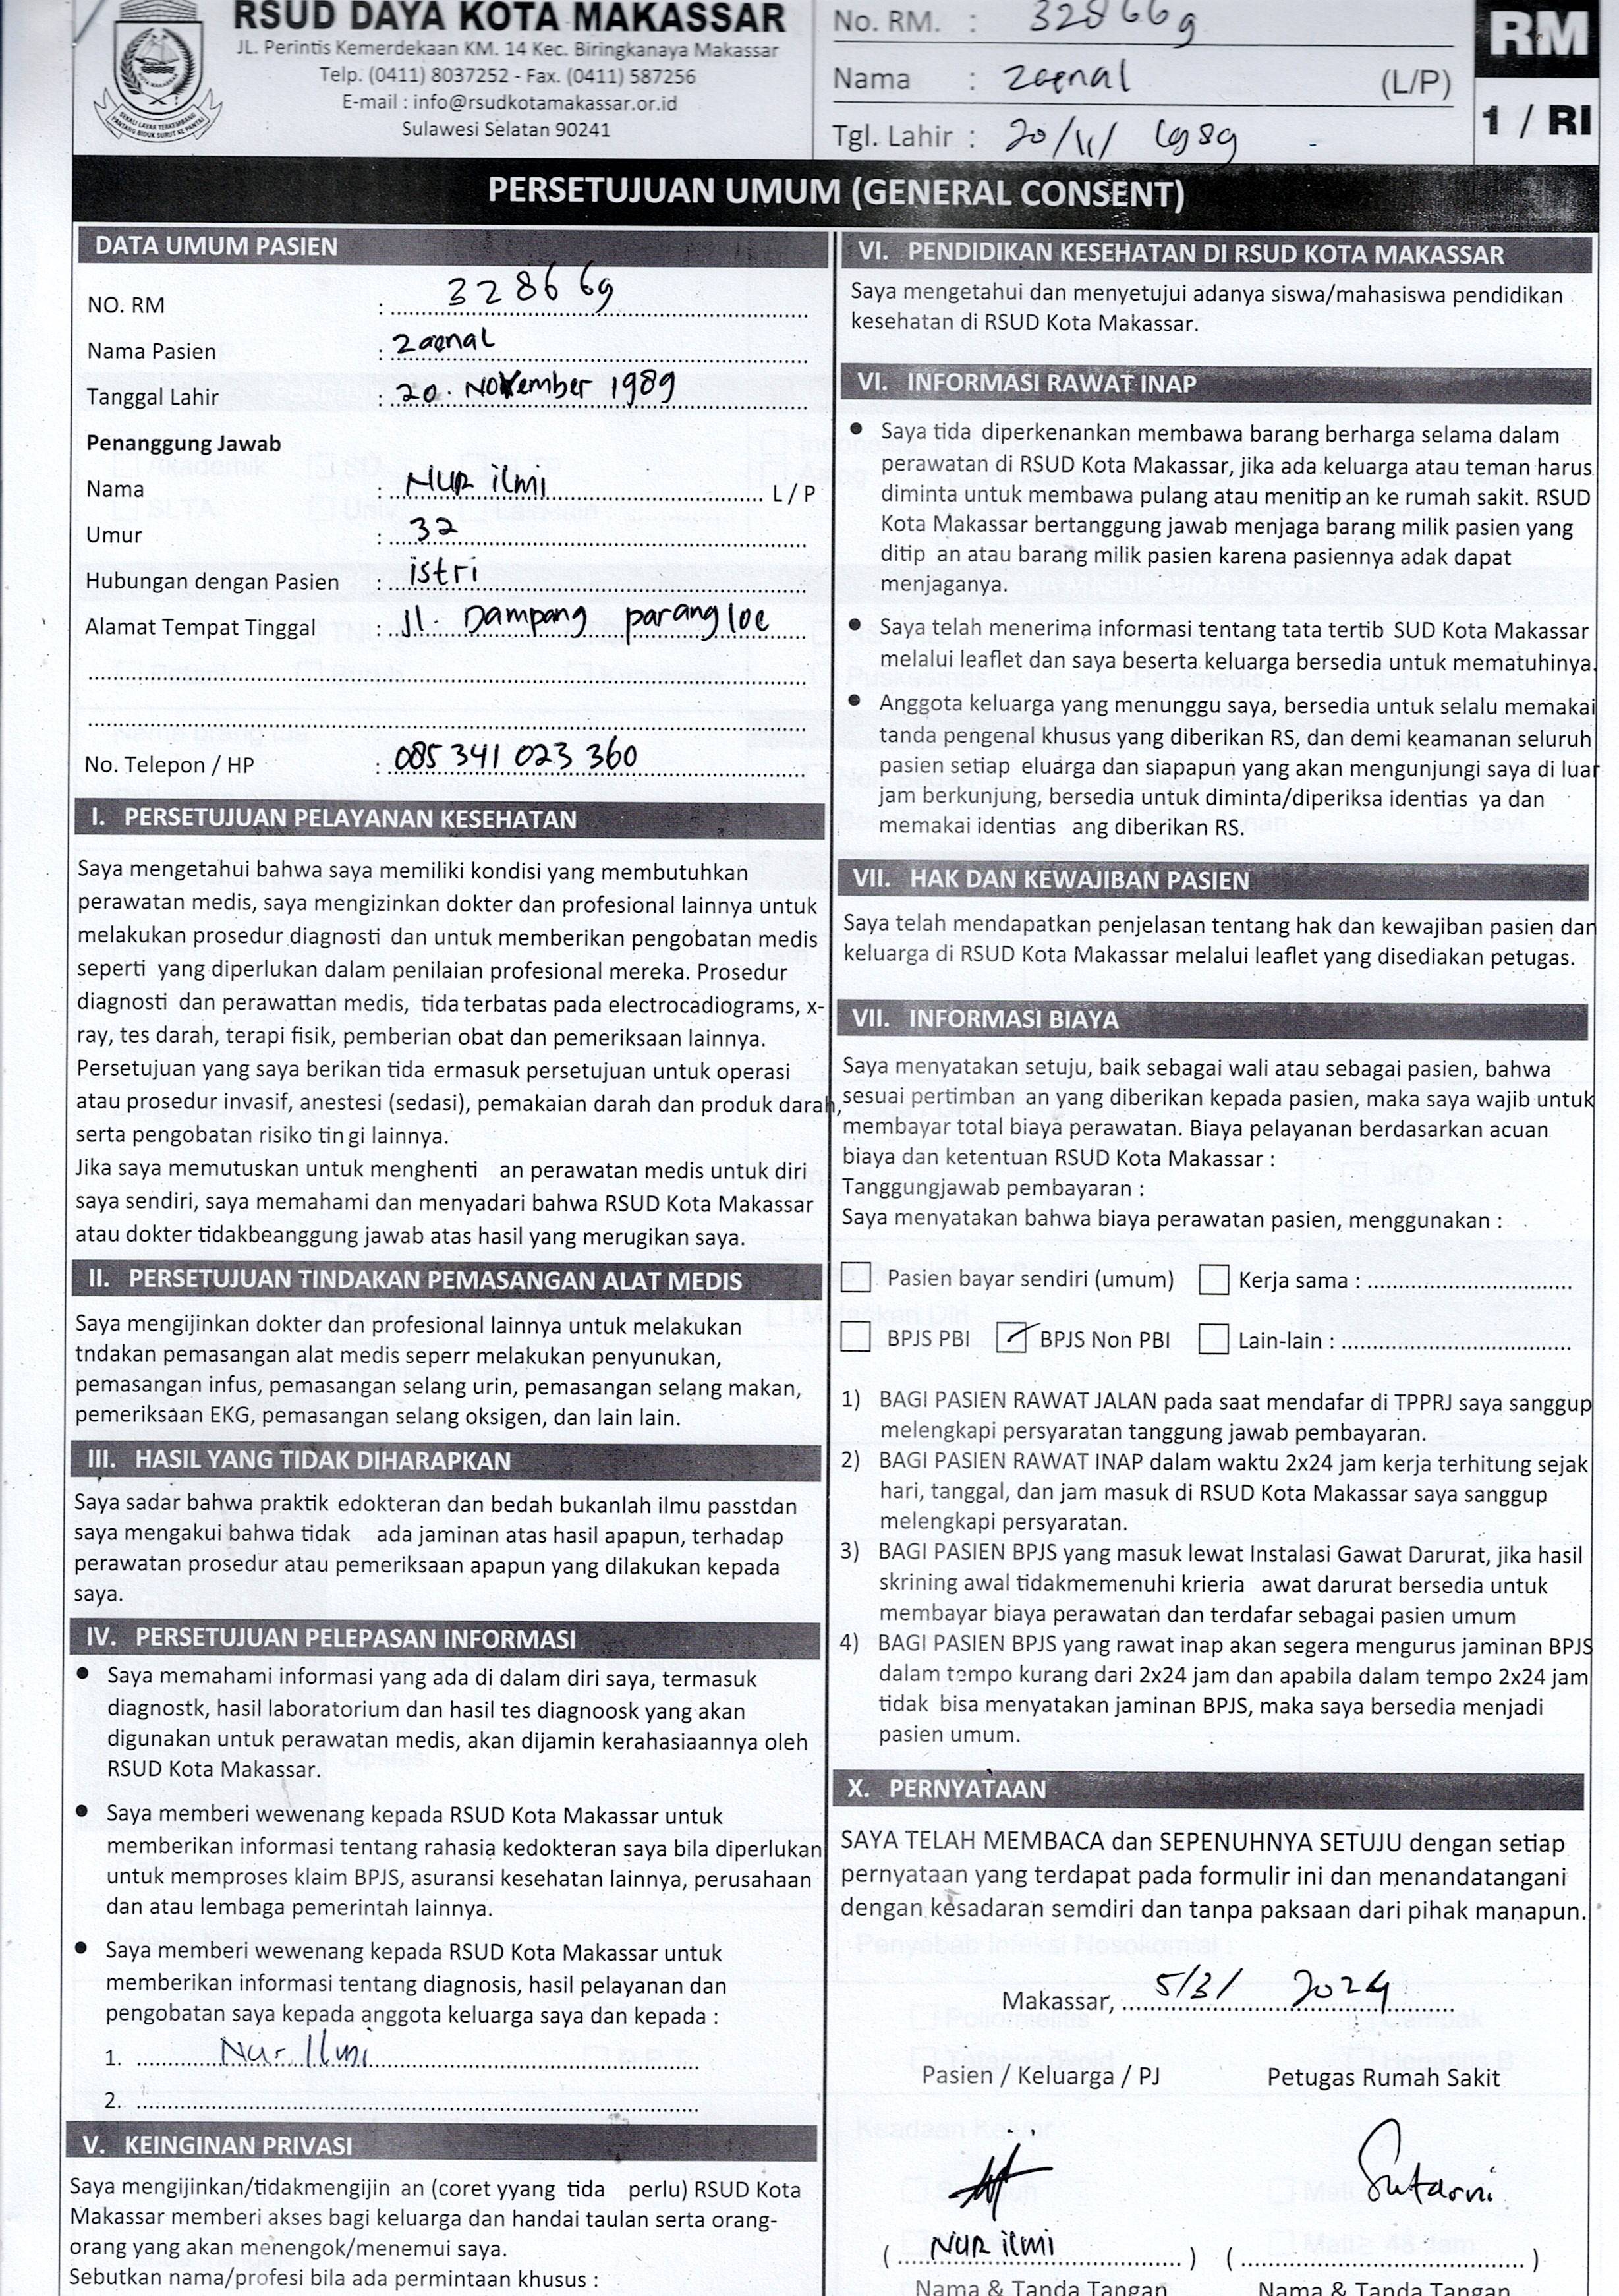 RSUD DAYA KOTA MAKASSAR
JL. Perintis Kemerdekaan KM. 14 Kec. Biringkanaya Makassar
Telp. (0411) 8037252 - Fax. (0411) 587256
E-mail : info@rsudkotamakassar.or.id
Sulawesi Selatan 90241
No. RM. : 328669
Nama : Zaenal (L/P)
Tgl. Lahir : 20/11/1989
RM
1 / RI
PERSETUJUAN UMUM (GENERAL CONSENT)
DATA UMUM PASIEN
NO. RM : 328669
Nama Pasien : Zaenal
Tanggal Lahir : 20. November 1989
Penanggung Jawab
Nama : Nur ilmi L / P
Umur : 32
Hubungan dengan Pasien : istri
Alamat Tempat Tinggal : Jl. Dampang parangloe
No. Telepon / HP : 085 341 023 360
I. PERSETUJUAN PELAYANAN KESEHATAN
Saya mengetahui bahwa saya memiliki kondisi yang membutuhkan
perawatan medis, saya mengizinkan dokter dan profesional lainnya untuk
melakukan prosedur diagnosti dan untuk memberikan pengobatan medis
seperti yang diperlukan dalam penilaian profesional mereka. Prosedur
diagnosti dan perawattan medis, tida terbatas pada electrocadiograms, x-
ray, tes darah, terapi fisik, pemberian obat dan pemeriksaan lainnya.
Persetujuan yang saya berikan tida ermasuk persetujuan untuk operasi
atau prosedur invasif, anestesi (sedasi), pemakaian darah dan produk darah,
serta pengobatan risiko tin gi lainnya.
Jika saya memutuskan untuk menghenti an perawatan medis untuk diri
saya sendiri, saya memahami dan menyadari bahwa RSUD Kota Makassar
atau dokter tidakbeanggung jawab atas hasil yang merugikan saya.
II. PERSETUJUAN TINDAKAN PEMASANGAN ALAT MEDIS
Saya mengijinkan dokter dan profesional lainnya untuk melakukan
tndakan pemasangan alat medis seperr melakukan penyunukan,
pemasangan infus, pemasangan selang urin, pemasangan selang makan,
pemeriksaan EKG, pemasangan selang oksigen, dan lain lain.
III. HASIL YANG TIDAK DIHARAPKAN
Saya sadar bahwa praktik edokteran dan bedah bukanlah ilmu passtdan
saya mengakui bahwa tidak ada jaminan atas hasil apapun, terhadap
perawatan prosedur atau pemeriksaan apapun yang dilakukan kepada
saya.
IV. PERSETUJUAN PELEPASAN INFORMASI
• Saya memahami informasi yang ada di dalam diri saya, termasuk
diagnostk, hasil laboratorium dan hasil tes diagnoosk yang akan
digunakan untuk perawatan medis, akan dijamin kerahasiaannya oleh
RSUD Kota Makassar.
• Saya memberi wewenang kepada RSUD Kota Makassar untuk
memberikan informasi tentang rahasia kedokteran saya bila diperlukan
untuk memproses klaim BPJS, asuransi kesehatan lainnya, perusahaan
dan atau lembaga pemerintah lainnya.
• Saya memberi wewenang kepada RSUD Kota Makassar untuk
memberikan informasi tentang diagnosis, hasil pelayanan dan
pengobatan saya kepada anggota keluarga saya dan kepada :
1. Nur Ilmi
2.
V. KEINGINAN PRIVASI
Saya mengijinkan/tidakmengijin an (coret yyang tida perlu) RSUD Kota
Makassar memberi akses bagi keluarga dan handai taulan serta orang-
orang yang akan menengok/menemui saya.
Sebutkan nama/profesi bila ada permintaan khusus :
VI. PENDIDIKAN KESEHATAN DI RSUD KOTA MAKASSAR
Saya mengetahui dan menyetujui adanya siswa/mahasiswa pendidikan
kesehatan di RSUD Kota Makassar.
VI. INFORMASI RAWAT INAP
• Saya tida diperkenankan membawa barang berharga selama dalam
perawatan di RSUD Kota Makassar, jika ada keluarga atau teman harus
diminta untuk membawa pulang atau menitip an ke rumah sakit. RSUD
Kota Makassar bertanggung jawab menjaga barang milik pasien yang
ditip an atau barang milik pasien karena pasiennya adak dapat
menjaganya.
• Saya telah menerima informasi tentang tata tertib SUD Kota Makassar
melalui leaflet dan saya beserta keluarga bersedia untuk mematuhinya.
• Anggota keluarga yang menunggu saya, bersedia untuk selalu memakai
tanda pengenal khusus yang diberikan RS, dan demi keamanan seluruh
pasien setiap eluarga dan siapapun yang akan mengunjungi saya di luar
jam berkunjung, bersedia untuk diminta/diperiksa identias ya dan
memakai identias ang diberikan RS.
VII. HAK DAN KEWAJIBAN PASIEN
Saya telah mendapatkan penjelasan tentang hak dan kewajiban pasien dan
keluarga di RSUD Kota Makassar melalui leaflet yang disediakan petugas.
VII. INFORMASI BIAYA
Saya menyatakan setuju, baik sebagai wali atau sebagai pasien, bahwa
sesuai pertimban an yang diberikan kepada pasien, maka saya wajib untuk
membayar total biaya perawatan. Biaya pelayanan berdasarkan acuan
biaya dan ketentuan RSUD Kota Makassar :
Tanggungjawab pembayaran :
Saya menyatakan bahwa biaya perawatan pasien, menggunakan :
Pasien bayar sendiri (umum) Kerja sama :
BPJS PBI BPJS Non PBI Lain-lain :
1) BAGI PASIEN RAWAT JALAN pada saat mendafar di TPPRJ saya sanggup
melengkapi persyaratan tanggung jawab pembayaran.
2) BAGI PASIEN RAWAT INAP dalam waktu 2x24 jam kerja terhitung sejak
hari, tanggal, dan jam masuk di RSUD Kota Makassar saya sanggup
melengkapi persyaratan.
3) BAGI PASIEN BPJS yang masuk lewat Instalasi Gawat Darurat, jika hasil
skrining awal tidakmemenuhi krieria awat darurat bersedia untuk
membayar biaya perawatan dan terdafar sebagai pasien umum
4) BAGI PASIEN BPJS yang rawat inap akan segera mengurus jaminan BPJS
dalam tempo kurang dari 2x24 jam dan apabila dalam tempo 2x24 jam
tidak bisa menyatakan jaminan BPJS, maka saya bersedia menjadi
pasien umum.
X. PERNYATAAN
SAYA TELAH MEMBACA dan SEPENUHNYA SETUJU dengan setiap
pernyataan yang terdapat pada formulir ini dan menandatangani
dengan kesadaran semdiri dan tanpa paksaan dari pihak manapun.
Makassar, 5/3/ 2024
Pasien / Keluarga / PJ Petugas Rumah Sakit
Sutarni
( Nur ilmi ) ( )
Nama & Tanda Tangan Nama & Tanda Tangan